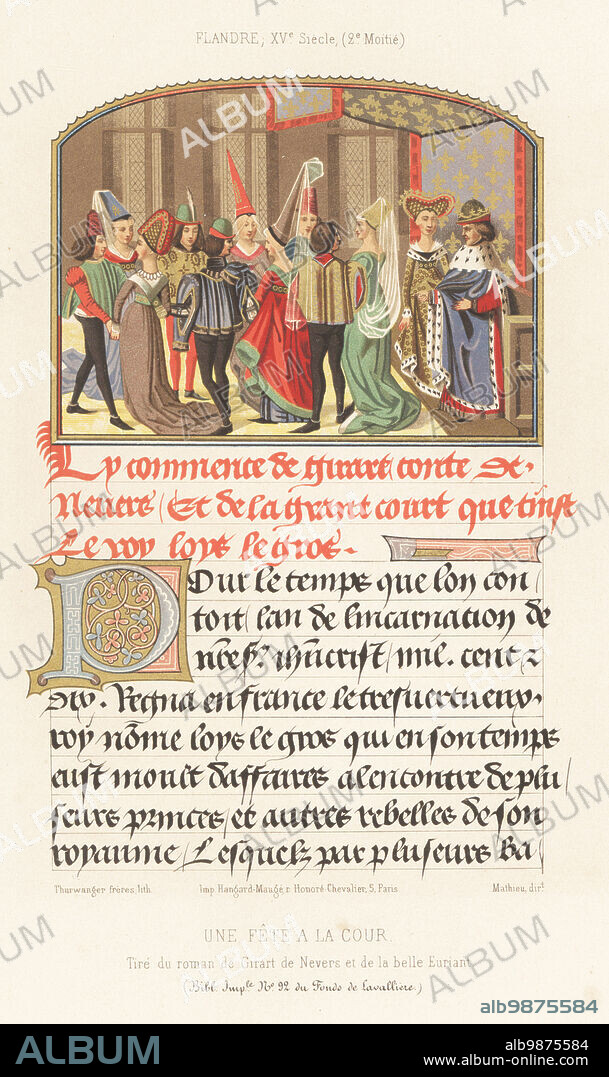 FLANDRE, XVᵉ Siècle, (2ᵉ Moitié)
Cy commence de girart conte de
Nevers / Et de la grant court que tinst
Le roy loys le gros .
Pour le temps que lon con /
toit / lan de lincarnation de
nr̄e sr̄. ihūcrist / mil. cent z
dix . Regna en france le tresvertueux .
roy nōme loys le gros qui en son temps
eust moult daffaires alencontre de plu /
seurs princes / et autres rebelles de son
royaume / Lesquelz par pluseurs ba /
Thurwanger frères, lith. Imp. Hangard-Maugé, r. Honoré-Chevalier, 5, Paris Mathieu, dirᵗ.
UNE FÊTE A LA COUR.
Tiré du roman de Girart de Nevers et de la belle Euriant
(Bibl. Impˡᵉ Nº 92 du Fonds de Lavallière.)
alb9875584
ALBUM
alb9875584
www.album-online.com